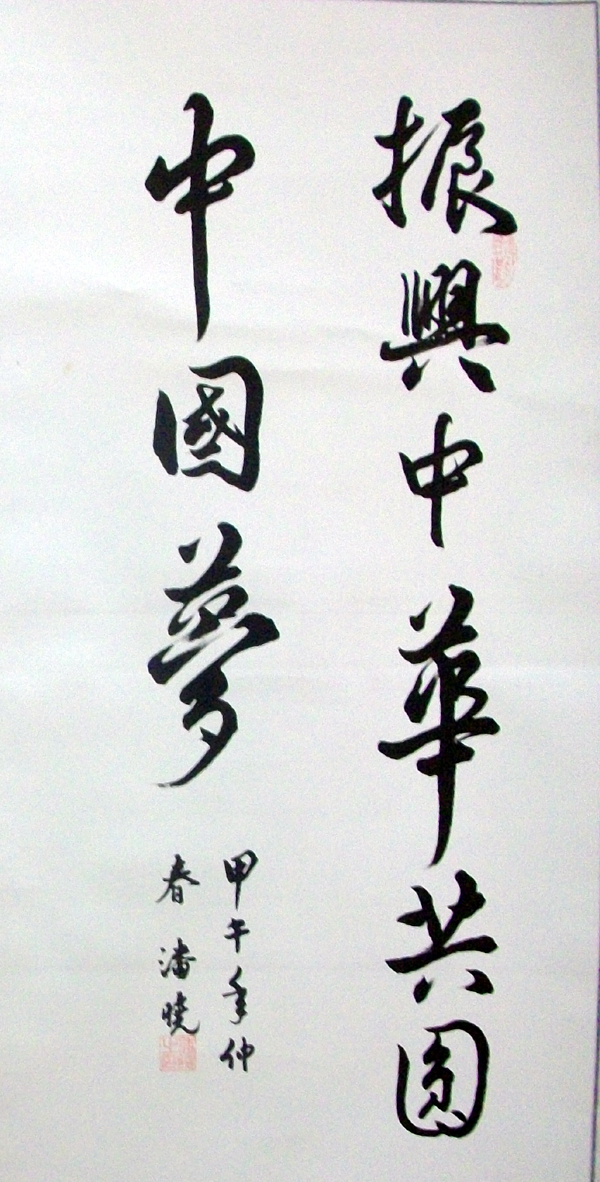 振興中華共圓
中國夢
甲午年仲
春潘曉